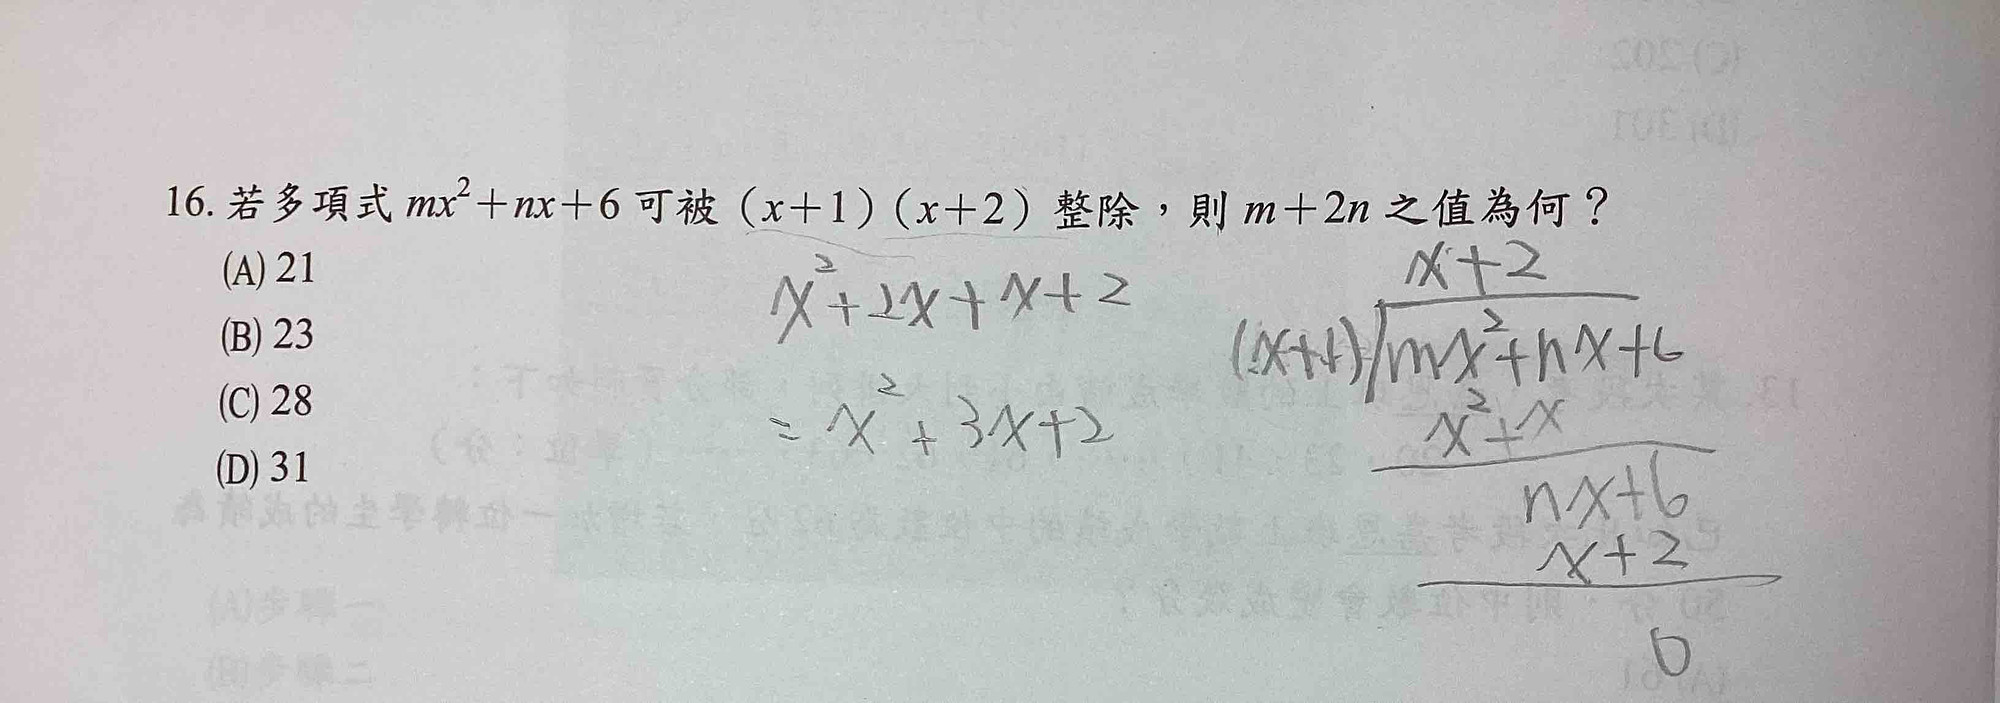 16. 若多項式 mx²+nx+6 可被（x+1）（x+2）整除，則 m+2n 之值為何？
(A) 21
(B) 23
(C) 28
(D) 31
x²+2x+x+2
= x²+3x+2
x+2
(x+1)/mx²+nx+6
x²+x
nx+6
x+2
0